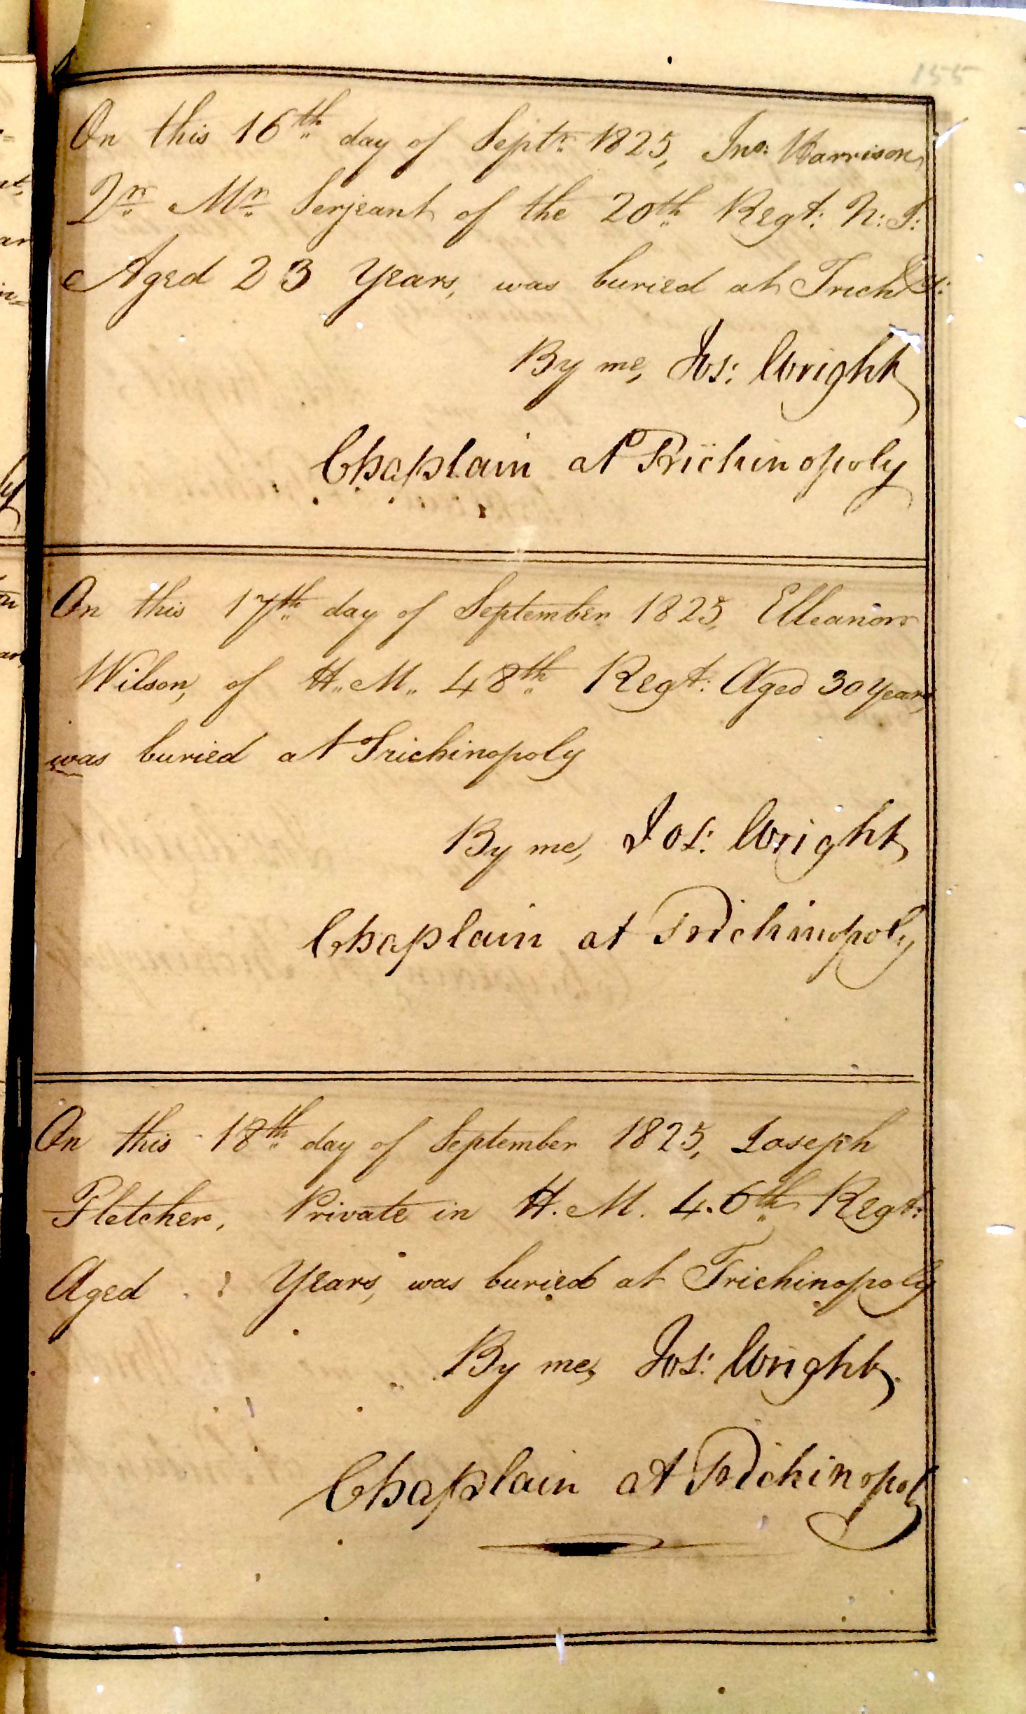 155
On this 16th day of Septr. 1825, Jno: Harrison,
Qr. Mr. Serjeant of the 20th Regt: N: I:
Aged 23 Years, was buried at Trich
By me, Jos: Wright
Chaplain at Trichinopoly
On this 17th day of September 1825, Elleanor
Wilson, of H. M. 48th Regt: Aged 30 Years,
was buried at Trichinopoly
By me, Jos: Wright
Chaplain at Trichinopoly
On this 18th day of September 1825, Joseph
Fletcher, Private in H. M. 46th Regt:
Aged : Years, was buried at Trichinopoly
By me, Jos: Wright
Chaplain at Trichinopoly